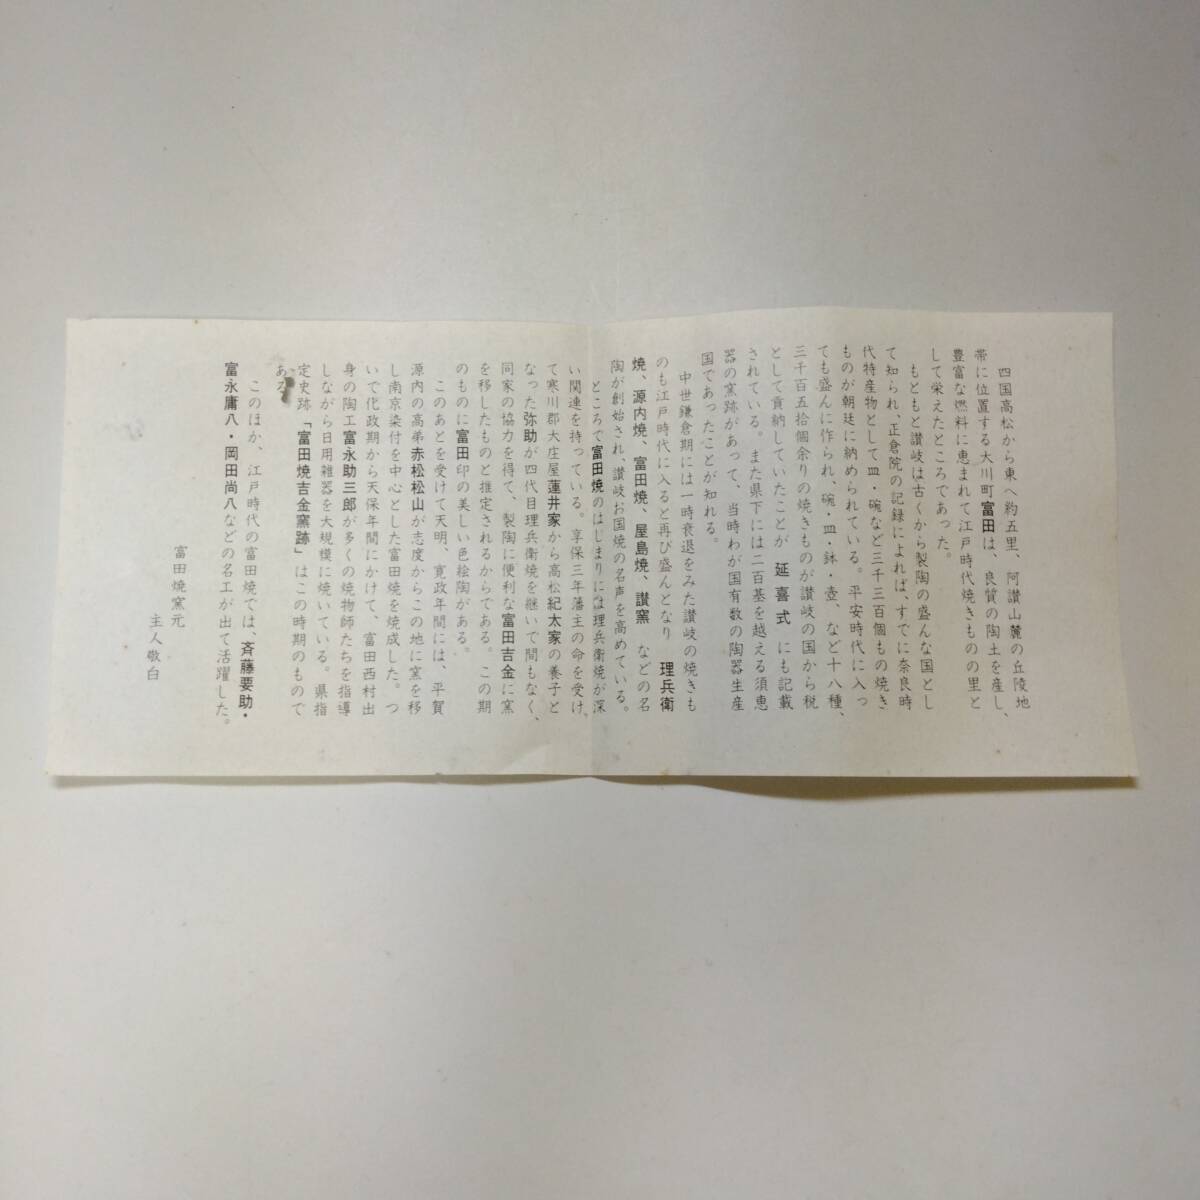 四国高松から東へ約五里、阿讃山麓の丘陵地
帯に位置する大川町富田は、良質の陶土を産し、
豊富な燃料に恵まれて江戸時代焼きものの里と
して栄えたところであった。
もともと讃岐は古くから製陶の盛んな国とし
て知られ、正倉院の記録によれば、すでに奈良時
代特産物として皿・碗など三千三百個もの焼き
ものが朝廷に納められている。平安時代に入っ
ても盛んに作られ、碗・皿・鉢・壺、など十八種、
三千百五拾個余りの焼きものが讃岐の国から税
として貢納していたことが 延喜式 にも記載
されている。また県下には二百基を越える須恵
器の窯跡があって、当時わが国有数の陶器生産
国であったことが知れる。
中世鎌倉期には一時衰退をみた讃岐の焼きも
のも江戸時代に入ると再び盛んとなり 理兵衛
焼、源内焼、富田焼、屋島焼、讃窯 などの名
陶が創始され、讃岐お国焼の名声を高めている。
ところで富田焼のはじまりには理兵衛焼が深
い関連を持っている。享保三年藩主の命を受け、
て寒川郡大庄屋蓮井家から高松紀太家の養子と
なった弥助が四代目理兵衛焼を継いで間もなく、
同家の協力を得て、製陶に便利な富田吉金に窯
を移したものと推定されるからである。この期
のものに富田印の美しい色絵陶がある。
このあとを受けて天明、寛政年間には、平賀
源内の高弟赤松松山が志度からこの地に窯を移
し南京染付を中心とした富田焼を焼成した。つ
いで化政期から天保年間にかけて、富田西村出
身の陶工富永助三郎が多くの焼物師たちを指導
しながら日用雑器を大規模に焼いている。県指
定史跡「富田焼吉金窯跡」はこの時期のもので
ある。
このほか、江戸時代の富田焼では、斉藤要助・
富永庸八・岡田尚八などの名工が出て活躍した。
富田焼窯元
主人敬白